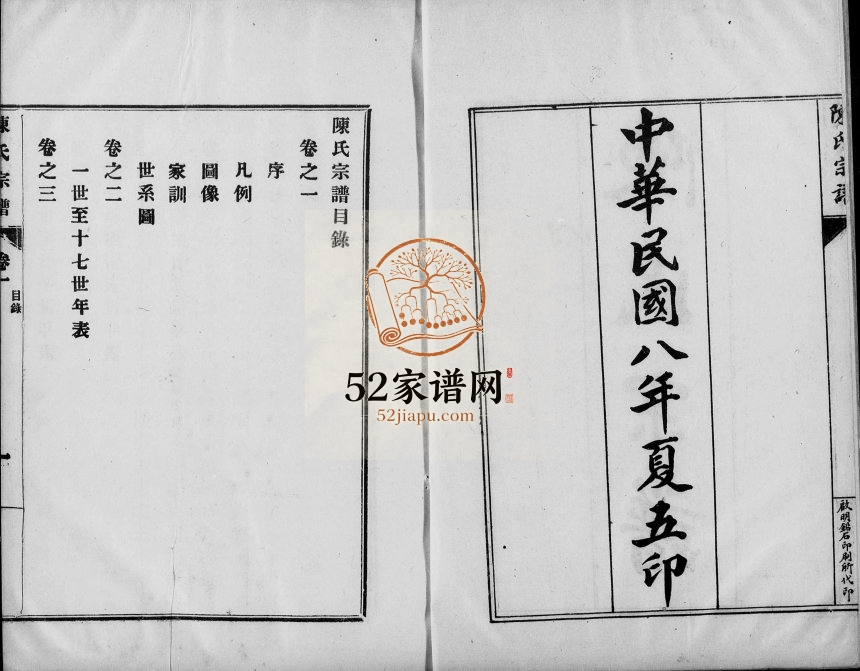 陳氏宗譜
啟明鉛石印刷所代印
中華民國八年夏五印
陳氏宗譜目錄
卷之一
序
凡例
圖像
家訓
世系圖
卷之二
一世至十七世年表
卷之三
陳氏宗譜
卷一
目錄
一
52家谱网
52jiapu.com